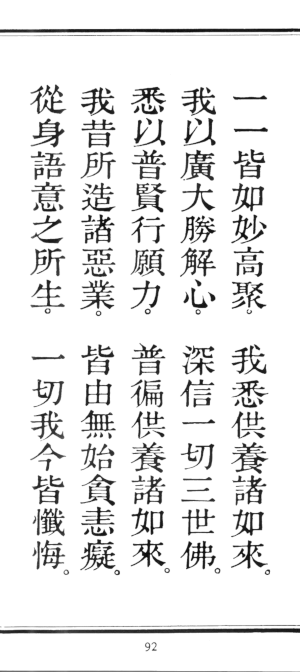 一一皆如妙高聚。我悉供養諸如來。
我以廣大勝解心。深信一切三世佛。
悉以普賢行願力。普徧供養諸如來。
我昔所造諸惡業。皆由無始貪恚癡。
從身語意之所生。一切我今皆懺悔。
92